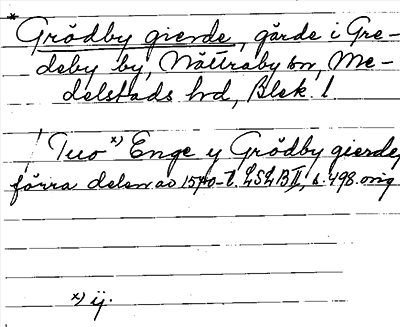 * Grödby gierde, gärde i Gre-
deby by, Nättraby sn, Me-
delstads hd, Blek. l.
Tuo x) Enge y Grödby gierde,
förra delen av 1540-t. LSLB II, s. 498. orig
x) ij.